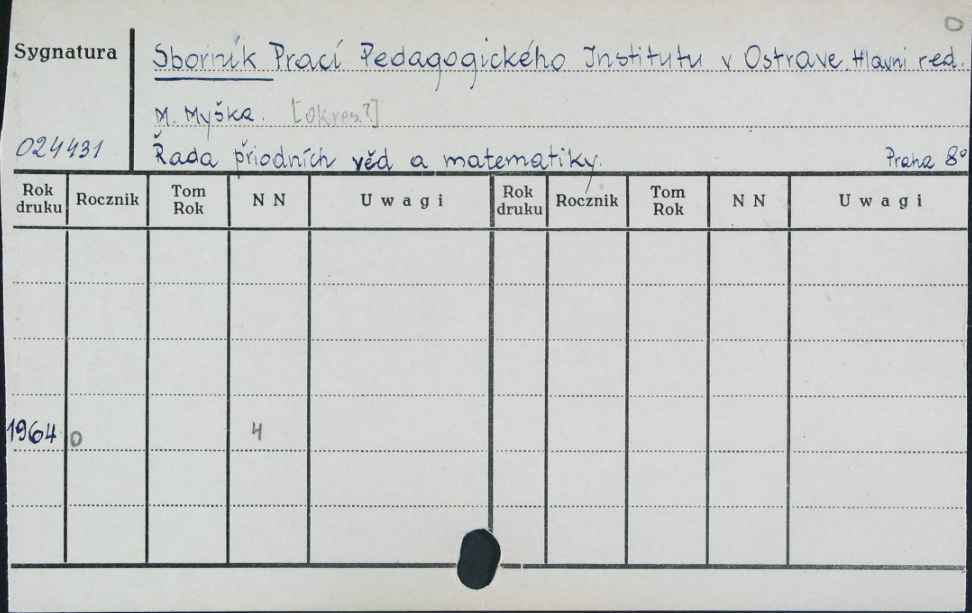 0
Sygnatura Sborník Prací Pedagogického Institutu v Ostrave. Hlavni red.
M. Myška. [okres?]
024431 Řada přiodních věd a matematiky. Praha 8º
Rok druku Rocznik Tom Rok N N Uwagi Rok druku Rocznik Tom Rok N N Uwagi
1964 0 4